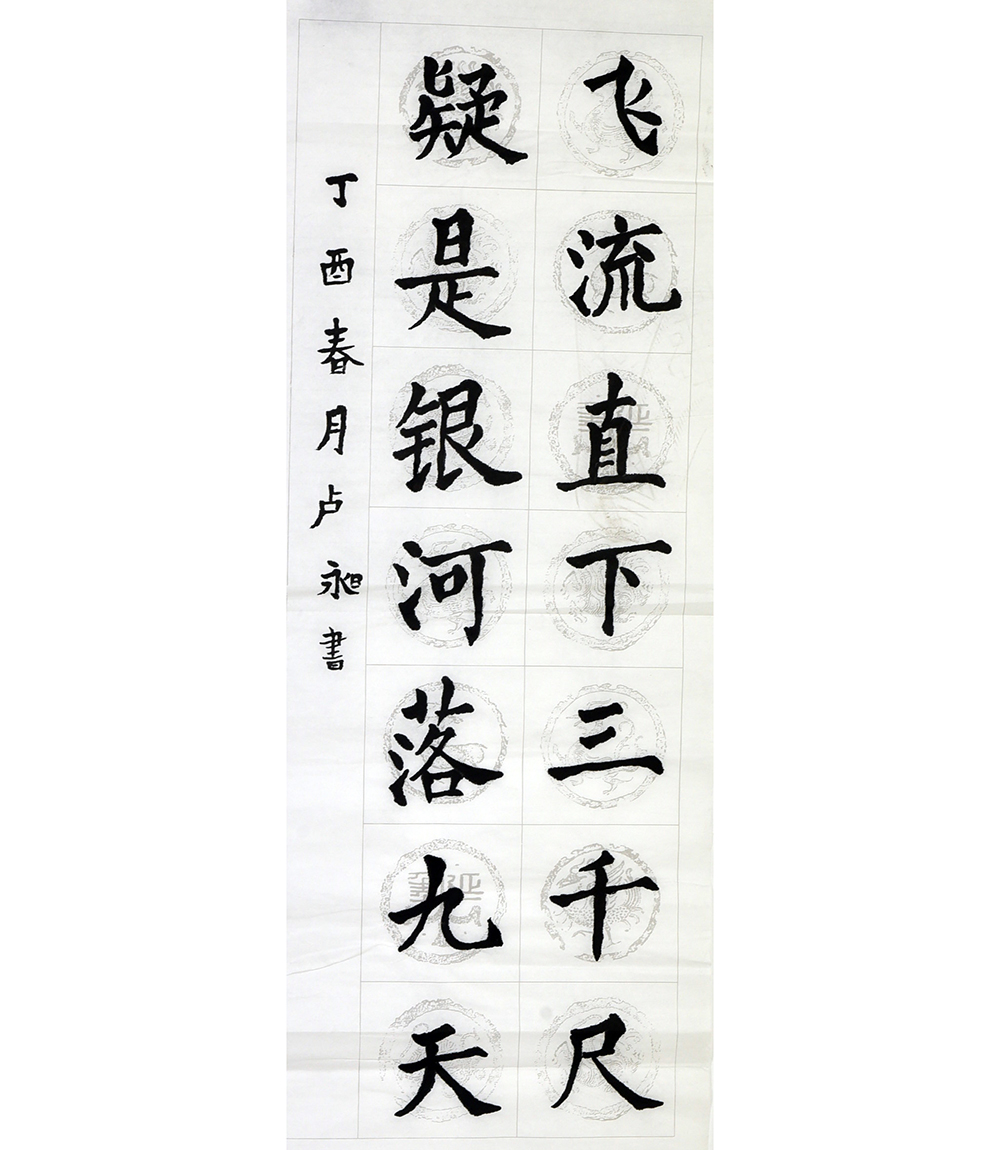 飞流直下三千尺
疑是银河落九天
丁酉春月卢昶書